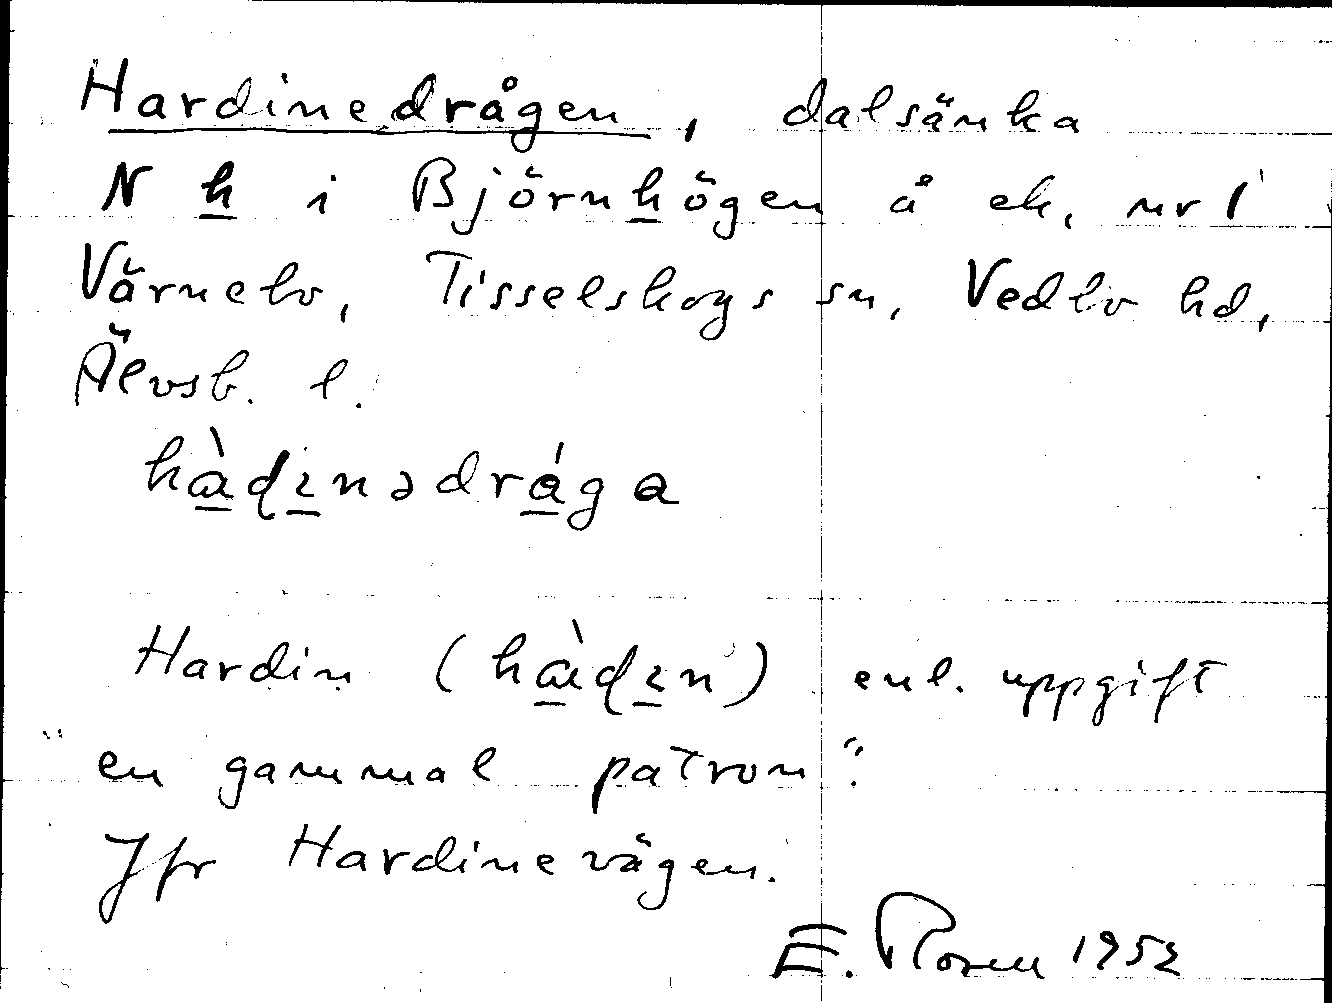 Hardinedrågen, dalsänka
N h i Björnhögen å ek. nr 1
Värnebo, Tisselskogs sn, Vedbo hd,
Älvsb. l.
hàɖɩnədrága
Hardin (hàɖɩn) enl. uppgift
"en gammal patron".
Jfr Hardinevägen.
E. Rosen 1952